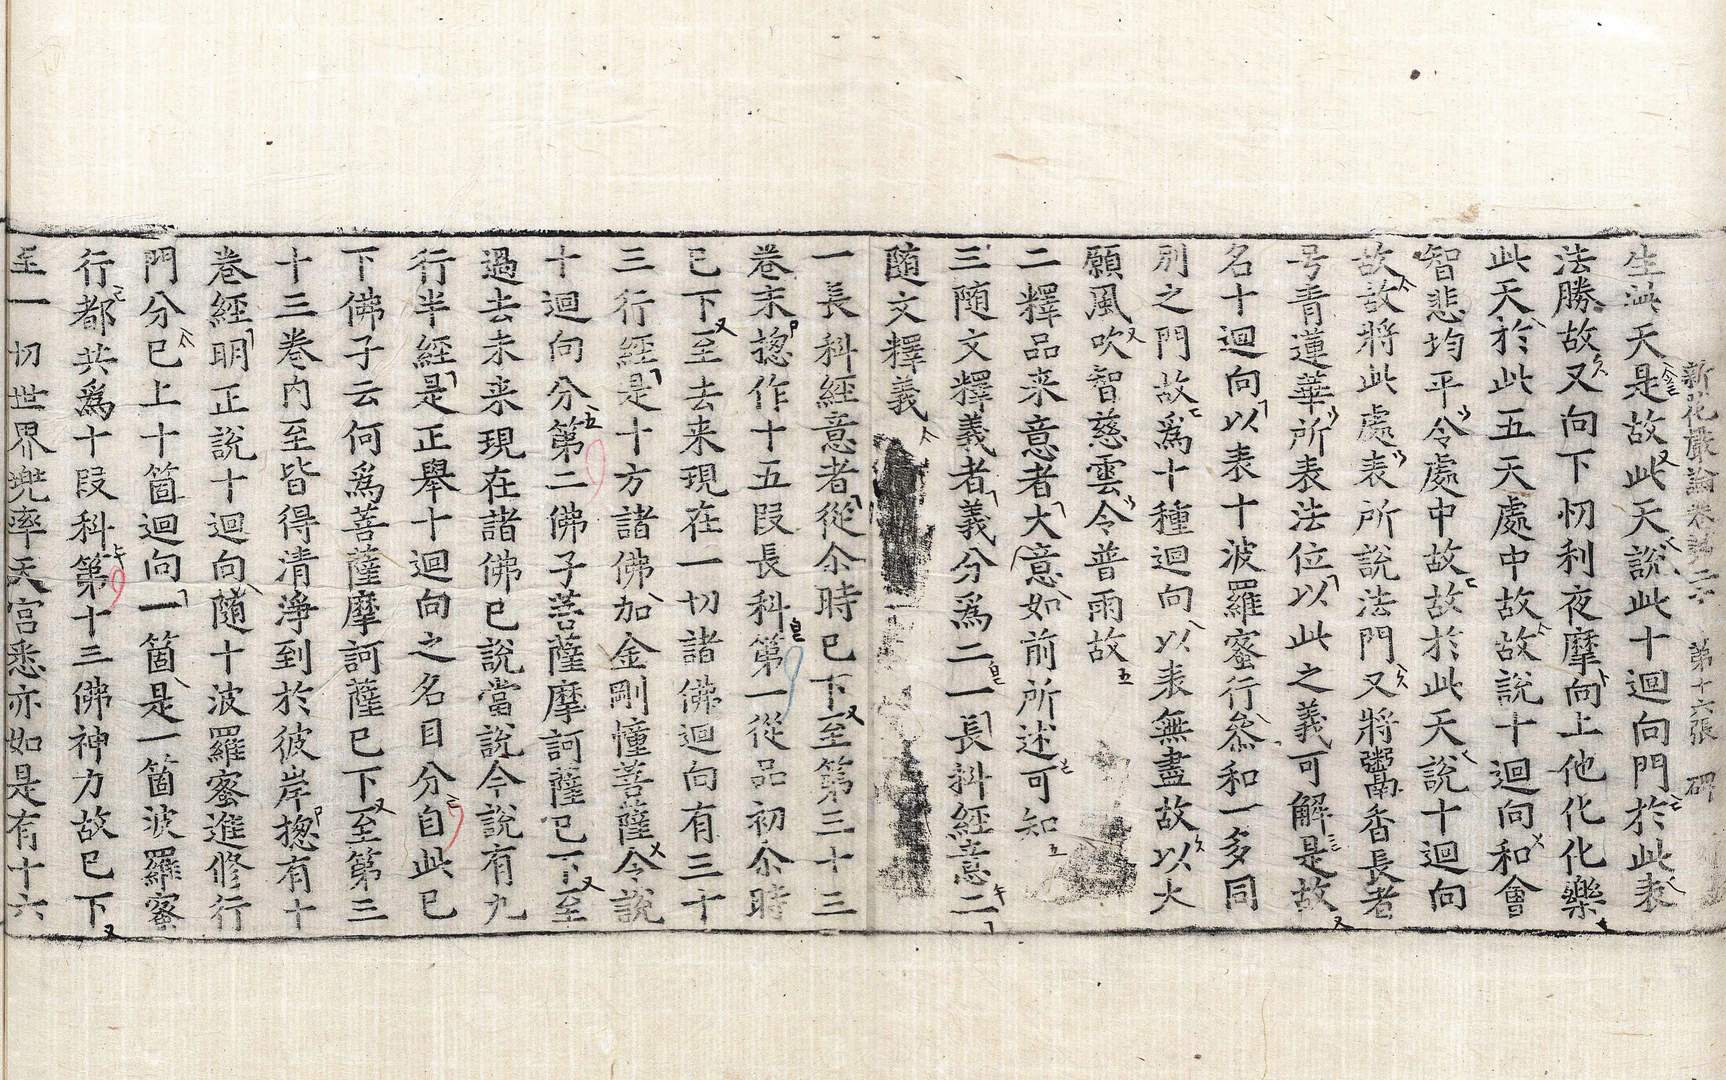 新花嚴論卷第二十 第十六張 碑
生此天是故此天說此十迴向門於此表
法勝故又向下忉利夜摩向上他化化樂
此天於此五天處中故故說十迴向和會
智悲均平令處中故故於此天說十迴向
故故將此處表所說法門又將鬻香長者
号青蓮華所表法位以此之義可解是故
名十迴向以表十波羅蜜行叅和一多同
別之門故爲十種迴向以表無盡故以大
願風吹智慈雲令普雨故
二釋品来意者大意如前所述可知
三随文釋義者義分爲二一長科經意二
随文釋義
一長科經意者從尒時已下至第三十三
卷末揔作十五段長科第一從品初尒時
已下至去来現在一切諸佛迴向有三十
三行經是十方諸佛加金剛幢菩薩令說
十迴向分第二佛子菩薩摩訶薩已下至
過去未来現在諸佛已說當說今說有九
行半經是正舉十迴向之名目分自此已
下佛子云何爲菩薩摩訶薩已下至第三
十三卷内至皆得清淨到於彼岸揔有十
卷經明正說十迴向随十波羅蜜進修行
門分已上十箇迴向一箇是一箇波羅蜜
行都共爲十段科第十三佛神力故已下
至一切世界兜率天宮悉亦如是有十六